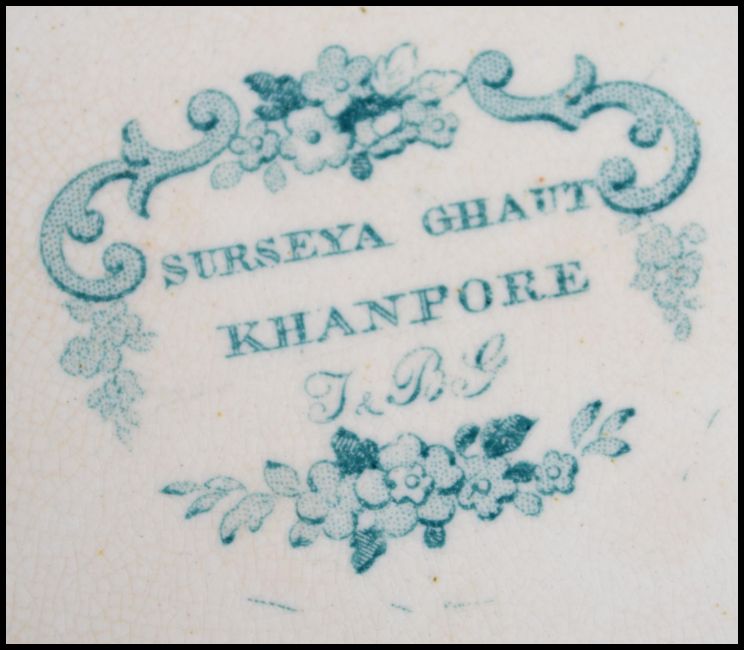 SURSEYA GHAUT
KHANPORE
T & B G